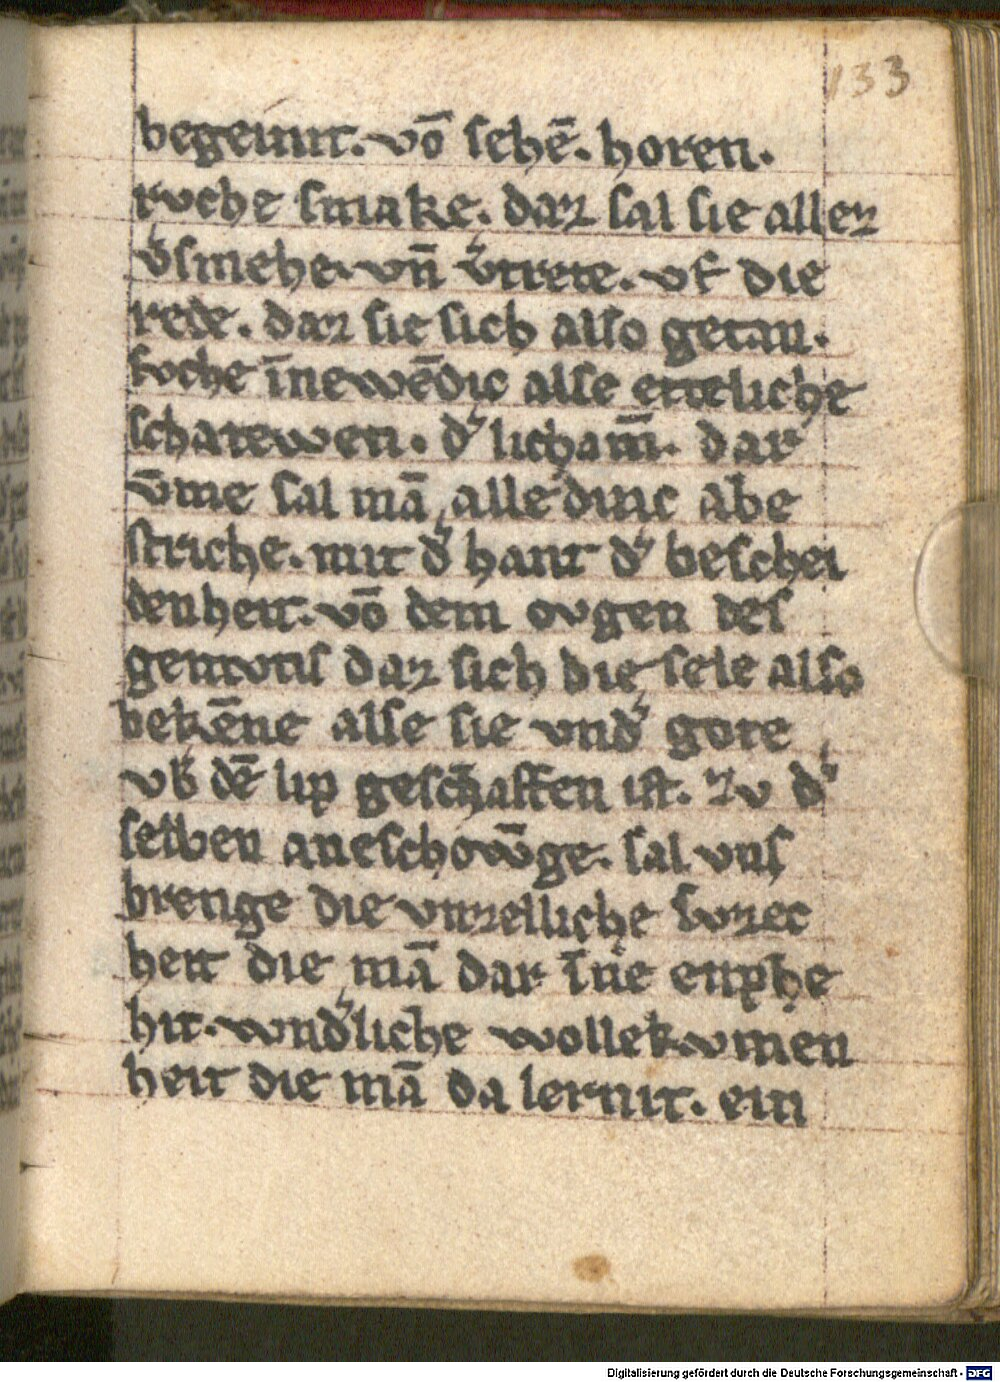 133
begeinit. vō sehē. horen.
ruche smake. daz sal sie allez
v͛smehe. vn̄ v͛trete. vf die
rede. daz sie sich also getan.
suche īnewēdic alse etteliche
schatewen. d͛ licham̄. dar
v̄me sal mā alle dinc abe
striche. mit d͛ hant d͛ beschei
denheit. vō dem ovgen des
gemvtis daz sich die sele also
bekēne alse sie vnd͛ gote
vb͛ dē lip geschaffen ist. zv d͛
selben aneschowv̄ge. sal vns
brenge die vnzelliche svzec
heit die mā dar īne enphe
hit. wnd͛liche wollekvmen
heit die mā da lernit. ein
Digitalisierung gefördert durch die Deutsche Forschungsgemeinschaft - DFG